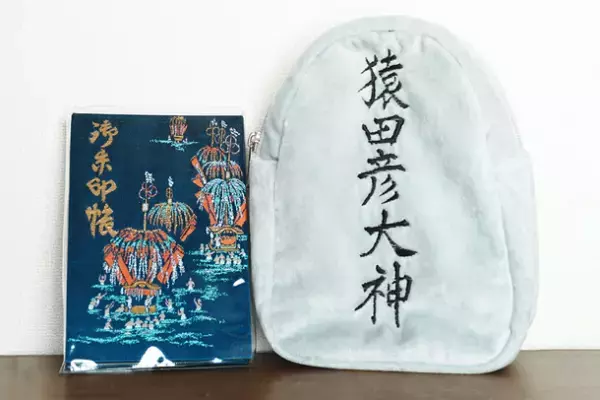 御朱印帳
猿田彦大神